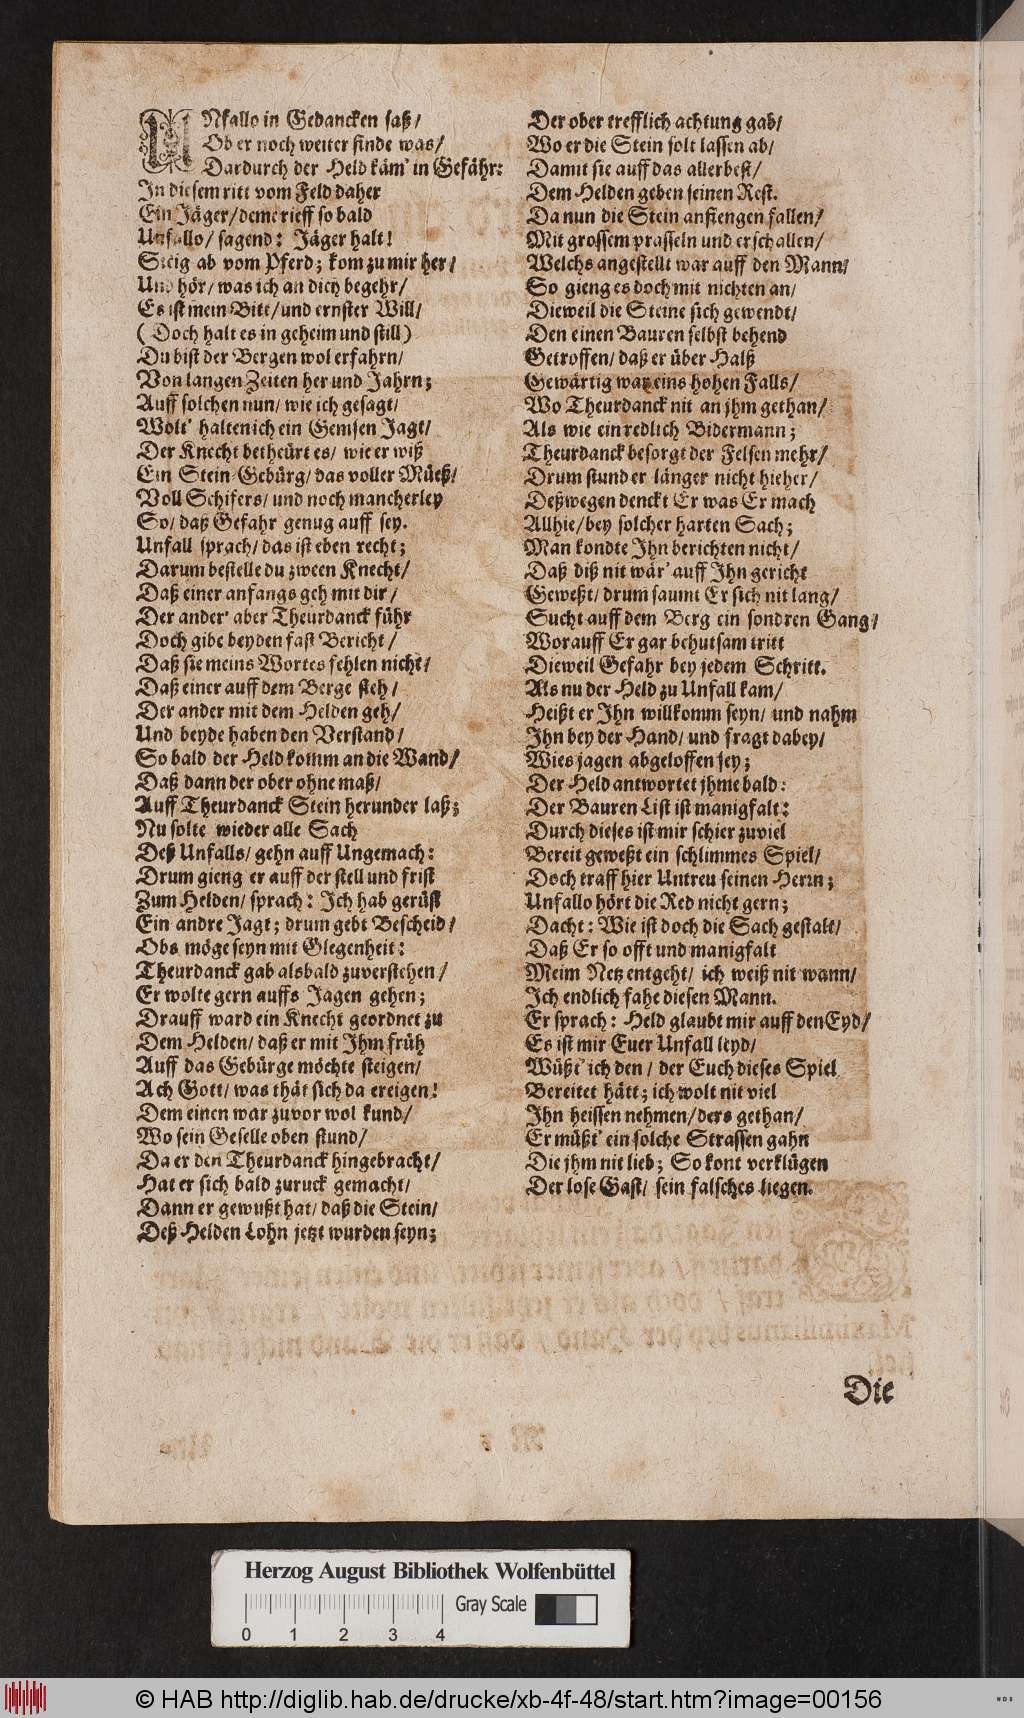 UNfallo in Gedancken saß/
Ob er noch weiter finde was/
Dardurch der Held käm' in Gefähr:
In diesem ritt vom Feld daher
Ein Jäger/ deme rieff so bald
Unfallo/ sagend: Jäger halt!
Steig ab vom Pferd; kom zu mir her/
Und hör/ was ich an dich begehr/
Es ist mein Bitt/ und ernster Will/
(Doch halt es in geheim und still)
Du bist der Bergen wol erfahrn/
Von langen Zeiten her und Jahrn;
Auff solchen nun/ wie ich gesagt/
Wolt' halten ich ein Gemsen Jagt/
Der Knecht betheürt es/ wie er wiß
Ein Stein-Gebürg/ das voller Müeß/
Voll Schifers/ und noch mancherley
So/ daß Gefahr genug auff sey.
Unfall sprach/ das ist eben recht;
Darum bestelle du zween Knecht/
Daß einer anfangs geh mit dir/
Der ander' aber Theurdanck führ
Doch gibe beyden fast Bericht/
Daß sie meins Wortes fehlen nicht/
Daß einer auff dem Berge steh/
Der ander mit dem Helden geh/
Und beyde haben den Verstand/
So bald der Held komm an die Wand/
Daß dann der ober ohne maß/
Auff Theurdanck Stein herunder laß;
Nu solte wieder alle Sach
Deß Unfalls/ gehn auff Ungemach:
Drum gieng er auff der stell und frist
Zum Helden/ sprach: Ich hab gerüst
Ein andre Jagt; drum gebt Bescheid/
Obs möge seyn mit Glegenheit:
Theurdanck gab alsbald zuverstehen/
Er wolte gern auffs Jagen gehen;
Drauff ward ein Knecht geordnet zu
Dem Helden/ daß er mit Ihm früh
Auff das Gebürge möchte steigen/
Ach Gott/ was thät sich da ereigen!
Dem einen war zuvor wol kund/
Wo sein Geselle oben stund/
Da er den Theurdanck hingebracht/
Hat er sich bald zuruck gemacht/
Dann er gewußt hat/ daß die Stein/
Deß Helden Lohn jetzt wurden seyn;
Der ober trefflich achtung gab/
Wo er die Stein solt lassen ab/
Damit sie auff das allerbest/
Dem Helden geben seinen Rest.
Da nun die Stein anfiengen fallen/
Mit grossem prasseln und erschallen/
Welchs angestellt war auff den Mann/
So gieng es doch mit nichten an/
Dieweil die Steine sich gewendt/
Den einen Bauren selbst behend
Getroffen/ daß er über Halß
Gewärtig war eins hohen Falls/
Wo Theurdanck nit an jhm gethan/
Als wie ein redlich Bidermann;
Theurdanck besorgt der Felsen mehr/
Drum stund er länger nicht hieher/
Deßwegen denckt Er was Er mach
Allhie/ bey solcher harten Sach;
Man kondte Ihn berichten nicht/
Daß diß nit wär' auff Ihn gericht
Geweßt/ drum saumt Er sich nit lang/
Sucht auff dem Berg ein sondren Gang/
Worauff Er gar behutsam tritt
Dieweil Gefahr bey jedem Schritt.
Als nu der Held zu Unfall kam/
Heißt er Ihn willkomm seyn/ und nahm
Ihn bey der Hand/ und fragt dabey/
Wies jagen abgeloffen sey;
Der Held antwortet jhme bald:
Der Bauren List ist manigfalt:
Durch dieses ist mir schier zuviel
Bereit geweßt ein schlimmes Spiel/
Doch traff hier Untreu seinen Herrn;
Unfallo hört die Red nicht gern;
Dacht: Wie ist doch die Sach gestalt/
Daß Er so offt und manigfalt
Meim Netz entgeht/ ich weiß nit wann/
Ich endlich fahe diesen Mann.
Er sprach: Held glaubt mir auff den Eyd/
Es ist mir Euer Unfall leyd/
Wüßt' ich den/ der Euch dieses Spiel
Bereitet hätt; ich wolt nit viel
Ihn heissen nehmen/ ders gethan/
Er müßt' ein solche Strassen gahn
Die jhm nit lieb; So kont verklügen
Der lose Gast/ sein falsches liegen.
Die
Herzog August Bibliothek Wolfenbüttel
Gray Scale
0 1 2 3 4
© HAB http://diglib.hab.de/drucke/xb-4f-48/start.htm?image=00156